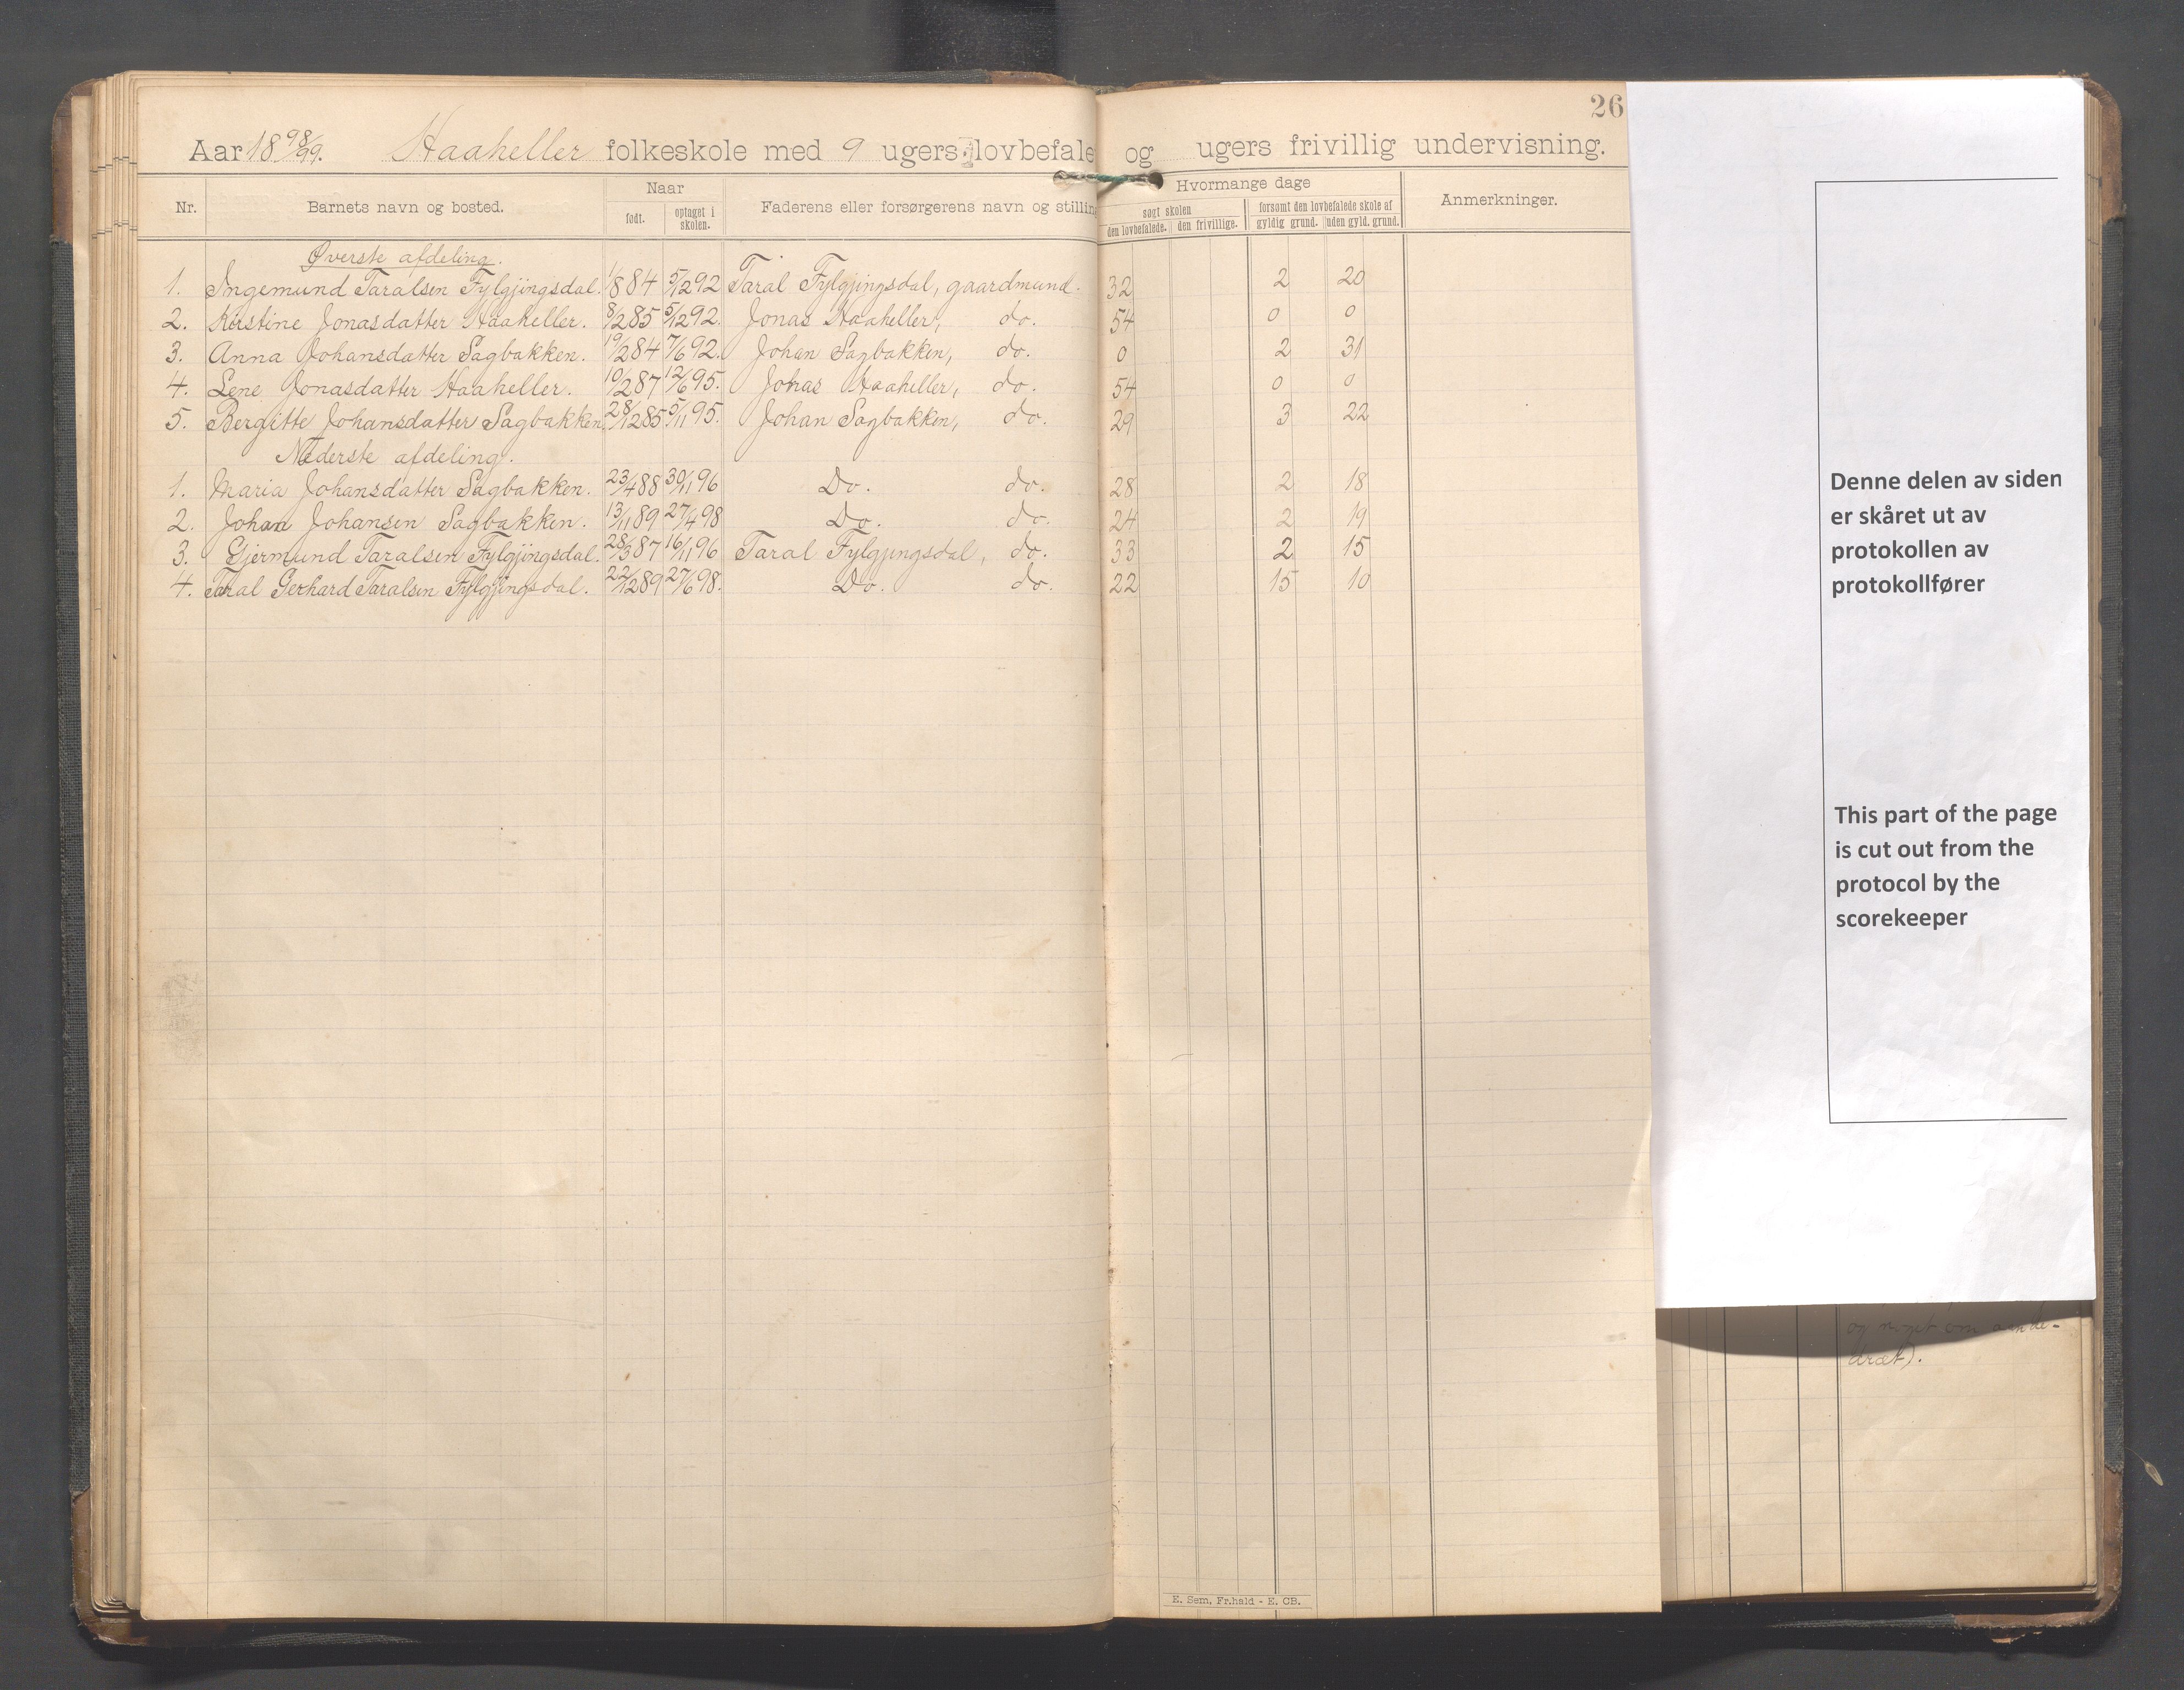 26
Aar 18 98/99. Haaheller folkeskole med 9 ugers lovbefale og ugers frivillig undervisning.
Nr. Barnets navn og bosted. Naar Faderens eller forsørgerens navn og stilling Hvormange dage Anmerkninger.
født. optaget i skolen. søgt skolen forsømt den lovbefalede skole af
den lovbefalede. den frivillige. gyldig grund. uden gyld. grund.
Øverste afdeling.
1. Ingemund Taralsen Fylgjingsdal. 1/8 84 5/12 92 Taral Fylgjingsdal, gaardmand. 32 2 20
2. Kirstine Jonasdatter Haaheller. 8/2 85 5/12 92. Jonas Haaheller, do. 54 0 0
3. Anna Johansdatter Sagbakken. 19/2 84 7/6 92. Johan Sagbakken, do. 0 2 31
4. Lene Jonasdatter Haaheller. 10/2 87 12/6 95. Jonas Haaheller, do. 54 0 0
5. Bergitte Johansdatter Sagbakken. 28/12 85 5/11 95. Johan Sagbakken, do. 29 3 22
Nederste afdeling.
1. Maria Johansdatter Sagbakken. 23/4 88 30/11 96 Do. do. 28 2 18
2. Johan Johansen Sagbakken. 13/11 89 27/4 98 Do. do. 24 2 19
3. Gjermund Taralsen Fylgjingsdal. 28/3 87 16/11 96 Taral Fylgjingsdal, do. 33 2 15
4. Taral Gerhard Taralsen Fylgjingsdal. 22/12 89 27/6 98. Do. do. 22 15 10
E. Sem, Fr.hald - E. CB.
Denne delen av siden
er skåret ut av
protokollen av
protokollfører
This part of the page
is cut out from the
protocol by the
scorekeeper
og noget om aande-
dræt).